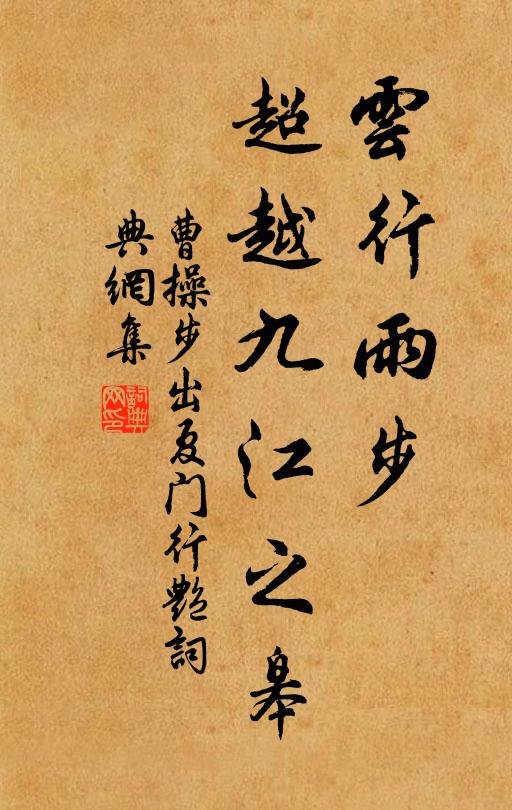 雲行雨步
超越九江之皋
曹操步出夏门行艷詞
典網集
詞典网印